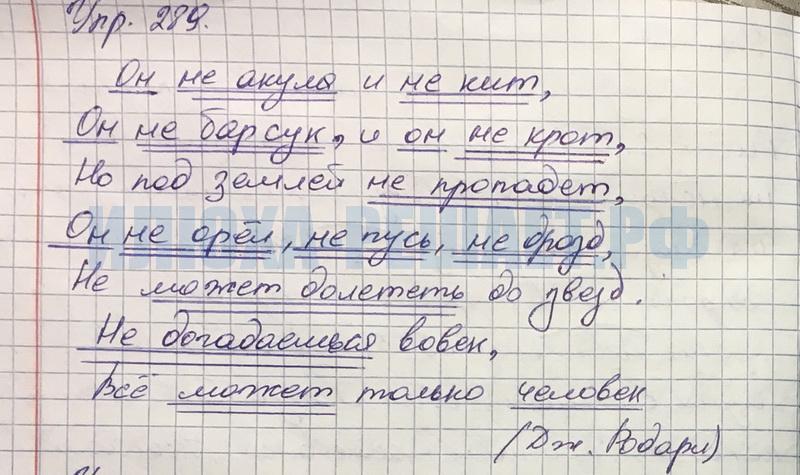 Упр. 289.
Он не акула и не кит,
Он не барсук, и он не крот,
Но под землей не пропадет,
Он не орёл, не гусь, не дрозд,
Не может долететь до звезд.
Не догадаешься вовек,
Всё может только человек
(Дж. Родари)
ИЛЮХА-РЕШАЕТ.РФ